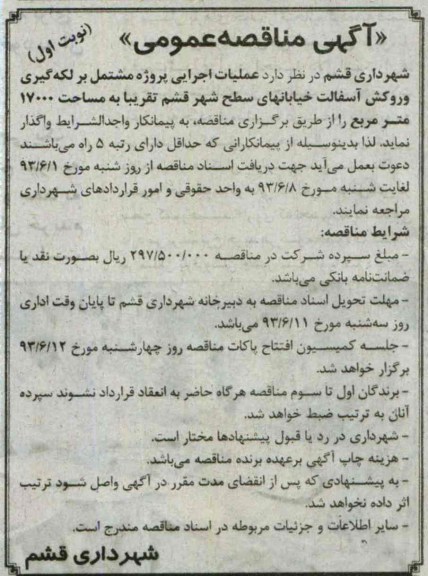 «آگهی مناقصه‌عمومی»
(نوبت اول)
شهرداری قشم در نظر دارد عملیات اجرایی پروژه مشتمل بر لکه‌گیری
وروکش آسفالت خیابانهای سطح شهر قشم تقریبا به مساحت ۱۷۰۰۰
متر مربع را از طریق برگزاری مناقصه، به پیمانکار واجدالشرایط واگذار
نماید. لذا بدینوسیله از پیمانکارانی که حداقل دارای رتبه ۵ راه می‌باشند
دعوت بعمل می‌آید جهت دریافت اسناد مناقصه از روز شنبه مورخ ۹۳/۶/۱
لغایت شنبه مورخ ۹۳/۶/۸ به واحد حقوقی و امور قراردادهای شهرداری
مراجعه نمایند.
شرایط مناقصه:
- مبلغ سپرده شرکت در مناقصه ۲۹۷/۵۰۰/۰۰۰ ریال بصورت نقد یا
ضمانت‌نامه بانکی می‌باشد.
- مهلت تحویل اسناد مناقصه به دبیرخانه شهرداری قشم تا پایان وقت اداری
روز سه‌شنبه مورخ ۹۳/۶/۱۱ می‌باشد.
- جلسه کمیسیون افتتاح پاکات مناقصه روز چهارشنبه مورخ ۹۳/۶/۱۲
برگزار خواهد شد.
- برندگان اول تا سوم مناقصه هرگاه حاضر به انعقاد قرارداد نشوند سپرده
آنان به ترتیب ضبط خواهد شد.
- شهرداری در رد یا قبول پیشنهادها مختار است.
- هزینه چاپ آگهی برعهده برنده مناقصه می‌باشد.
- به پیشنهادی که پس از انقضای مدت مقرر در آگهی واصل شود ترتیب
اثر داده نخواهد شد.
- سایر اطلاعات و جزئیات مربوطه در اسناد مناقصه مندرج است.
شهرداری قشم